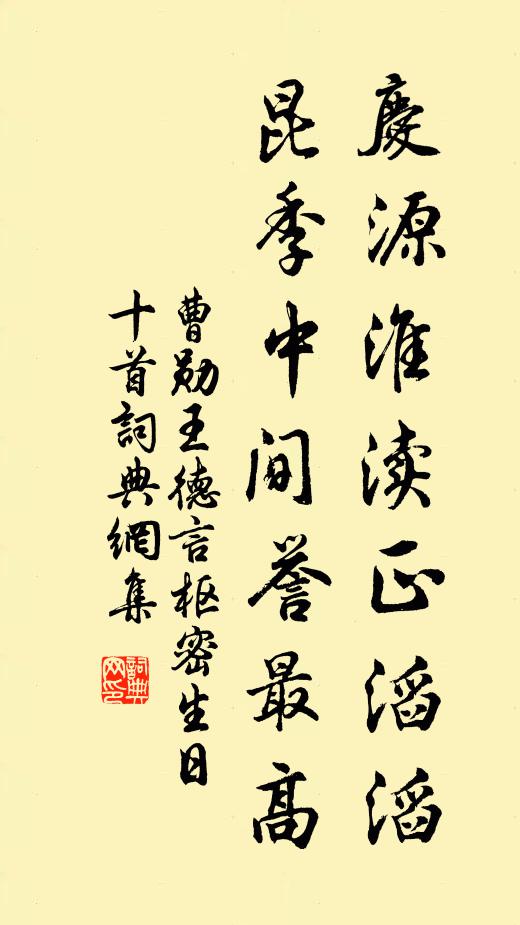 慶源淮渎正滔滔
昆季中间誉最高
曹勋王德言枢密生日
十首詞典網集
詞典
网印